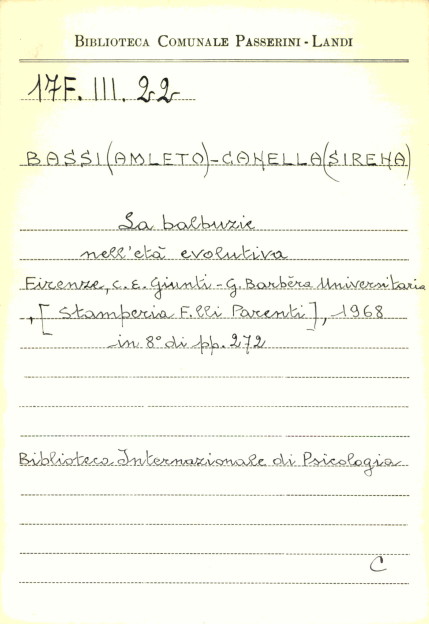 BIBLIOTECA COMUNALE PASSERINI - LANDI
17F. III. 22
BASSI (AMLETO) - CANELLA (SIRENA)
La balbuzie
nell'età evolutiva
Firenze, C. E. Giunti - G. Barbèra Universitaria
, [Stamperia F.lli Parenti], 1968
in 8° di pp. 272
Biblioteca Internazionale di Psicologia
C